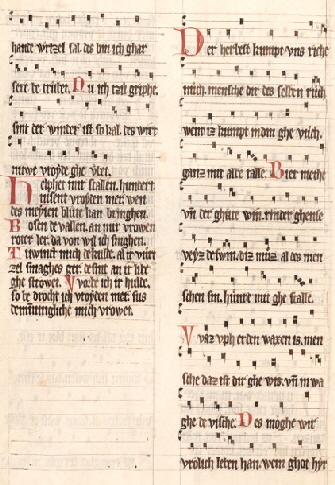 hande wrtzel sal des bin ich ghar
sere be truber. Nu ich
sint der winder ist so kal. des wirt
niwe vroyde ghe
Helphet mir scallen. hundert
tusent vroyden mer. wen
des meyien blute kan bringhen.
Rosen de vallen. an mir vrowen
roter ler. da von wil ich singhen.
Twinct mich de kulde. al ir wur
zel smaghes ger. de sint an ir libe
ghe strowet. Wrbe ich ir hulde.
so be drocht ich vroyden mer. sus
de minnigliche mich vrowet.
Der herbest kumpt vns riche
nuch. mensche dir des selben
wenn iz kumpt in din ghe
ganz mit alre salle. Bier methe
vn der ghute win. rinder ghense
veyz de swin. diz muz al des men
schen sin. hunre mit ghe scalle.
Waz vph erden waxen is. men
sche daz ist dir ghe wis. vn in wa
ghe de vische. Des moghe wir
vrolich leben han. wem ghot hyr